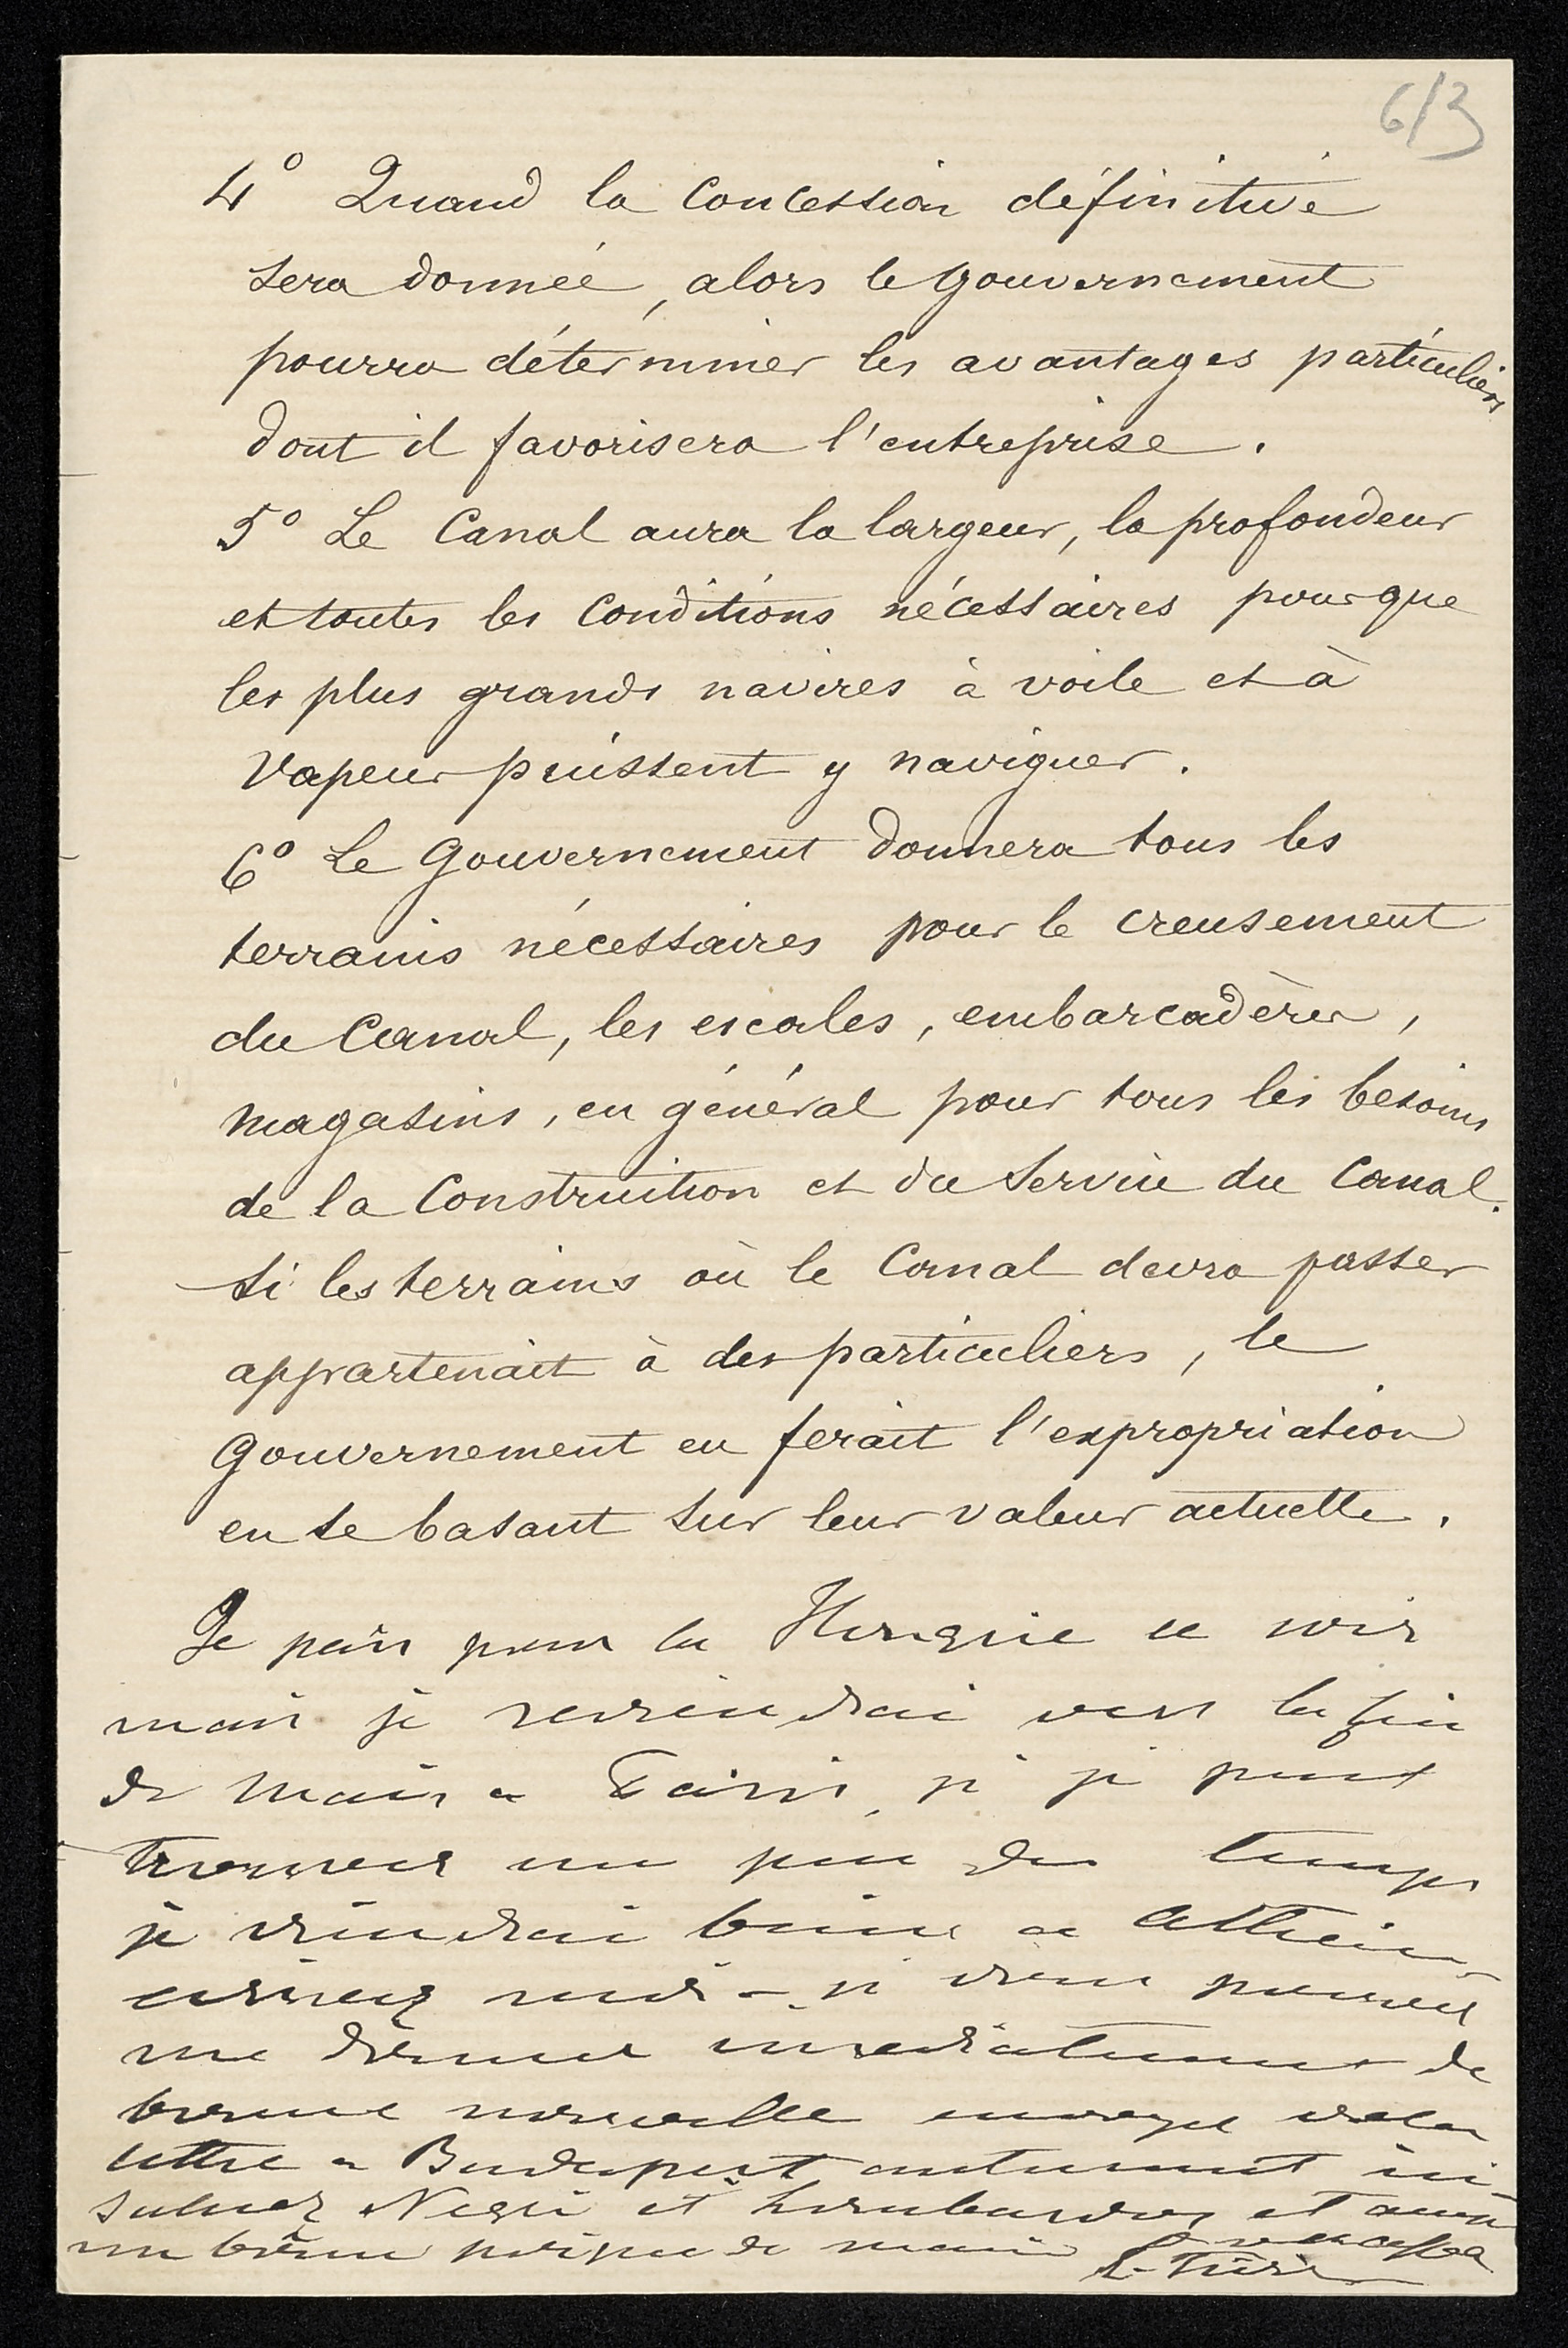 6/3
4° Quand la Concession définitive
sera donnée, alors le Gouvernement
pourra déterminer les avantages particuliers
dont il favorisera l'entreprise.
5° Le Canal aura la largeur, la profondeur
et toutes les conditions nécessaires pour que
les plus grands navires à voile et à
vapeur puissent y naviguer.
6° Le Gouvernement donnera tous les
terrains nécessaires pour le creusement
du Canal, les escales, embarcadères,
magasins, en général pour tous les besoins
de la Construction et du service du Canal.
Si les terrains où le Canal devra passer
appartenait à des particuliers, le
Gouvernement en ferait l'expropriation
en se basant sur leur valeur actuelle.
Je pars pour la Hongrie ce soir
mais je reviendrai vers la fin
de Mars a Paris, si je peut
trouver un peu du temps
je viendrai bien a Athèn
ecrivez moi - si vous pouvez
me donner imediatement de
bonne nouvelle envoyez la
lettre a Budapest, autrement ici
saluez Negri et Lombardos et
une bonne poignee de main
L. Türr